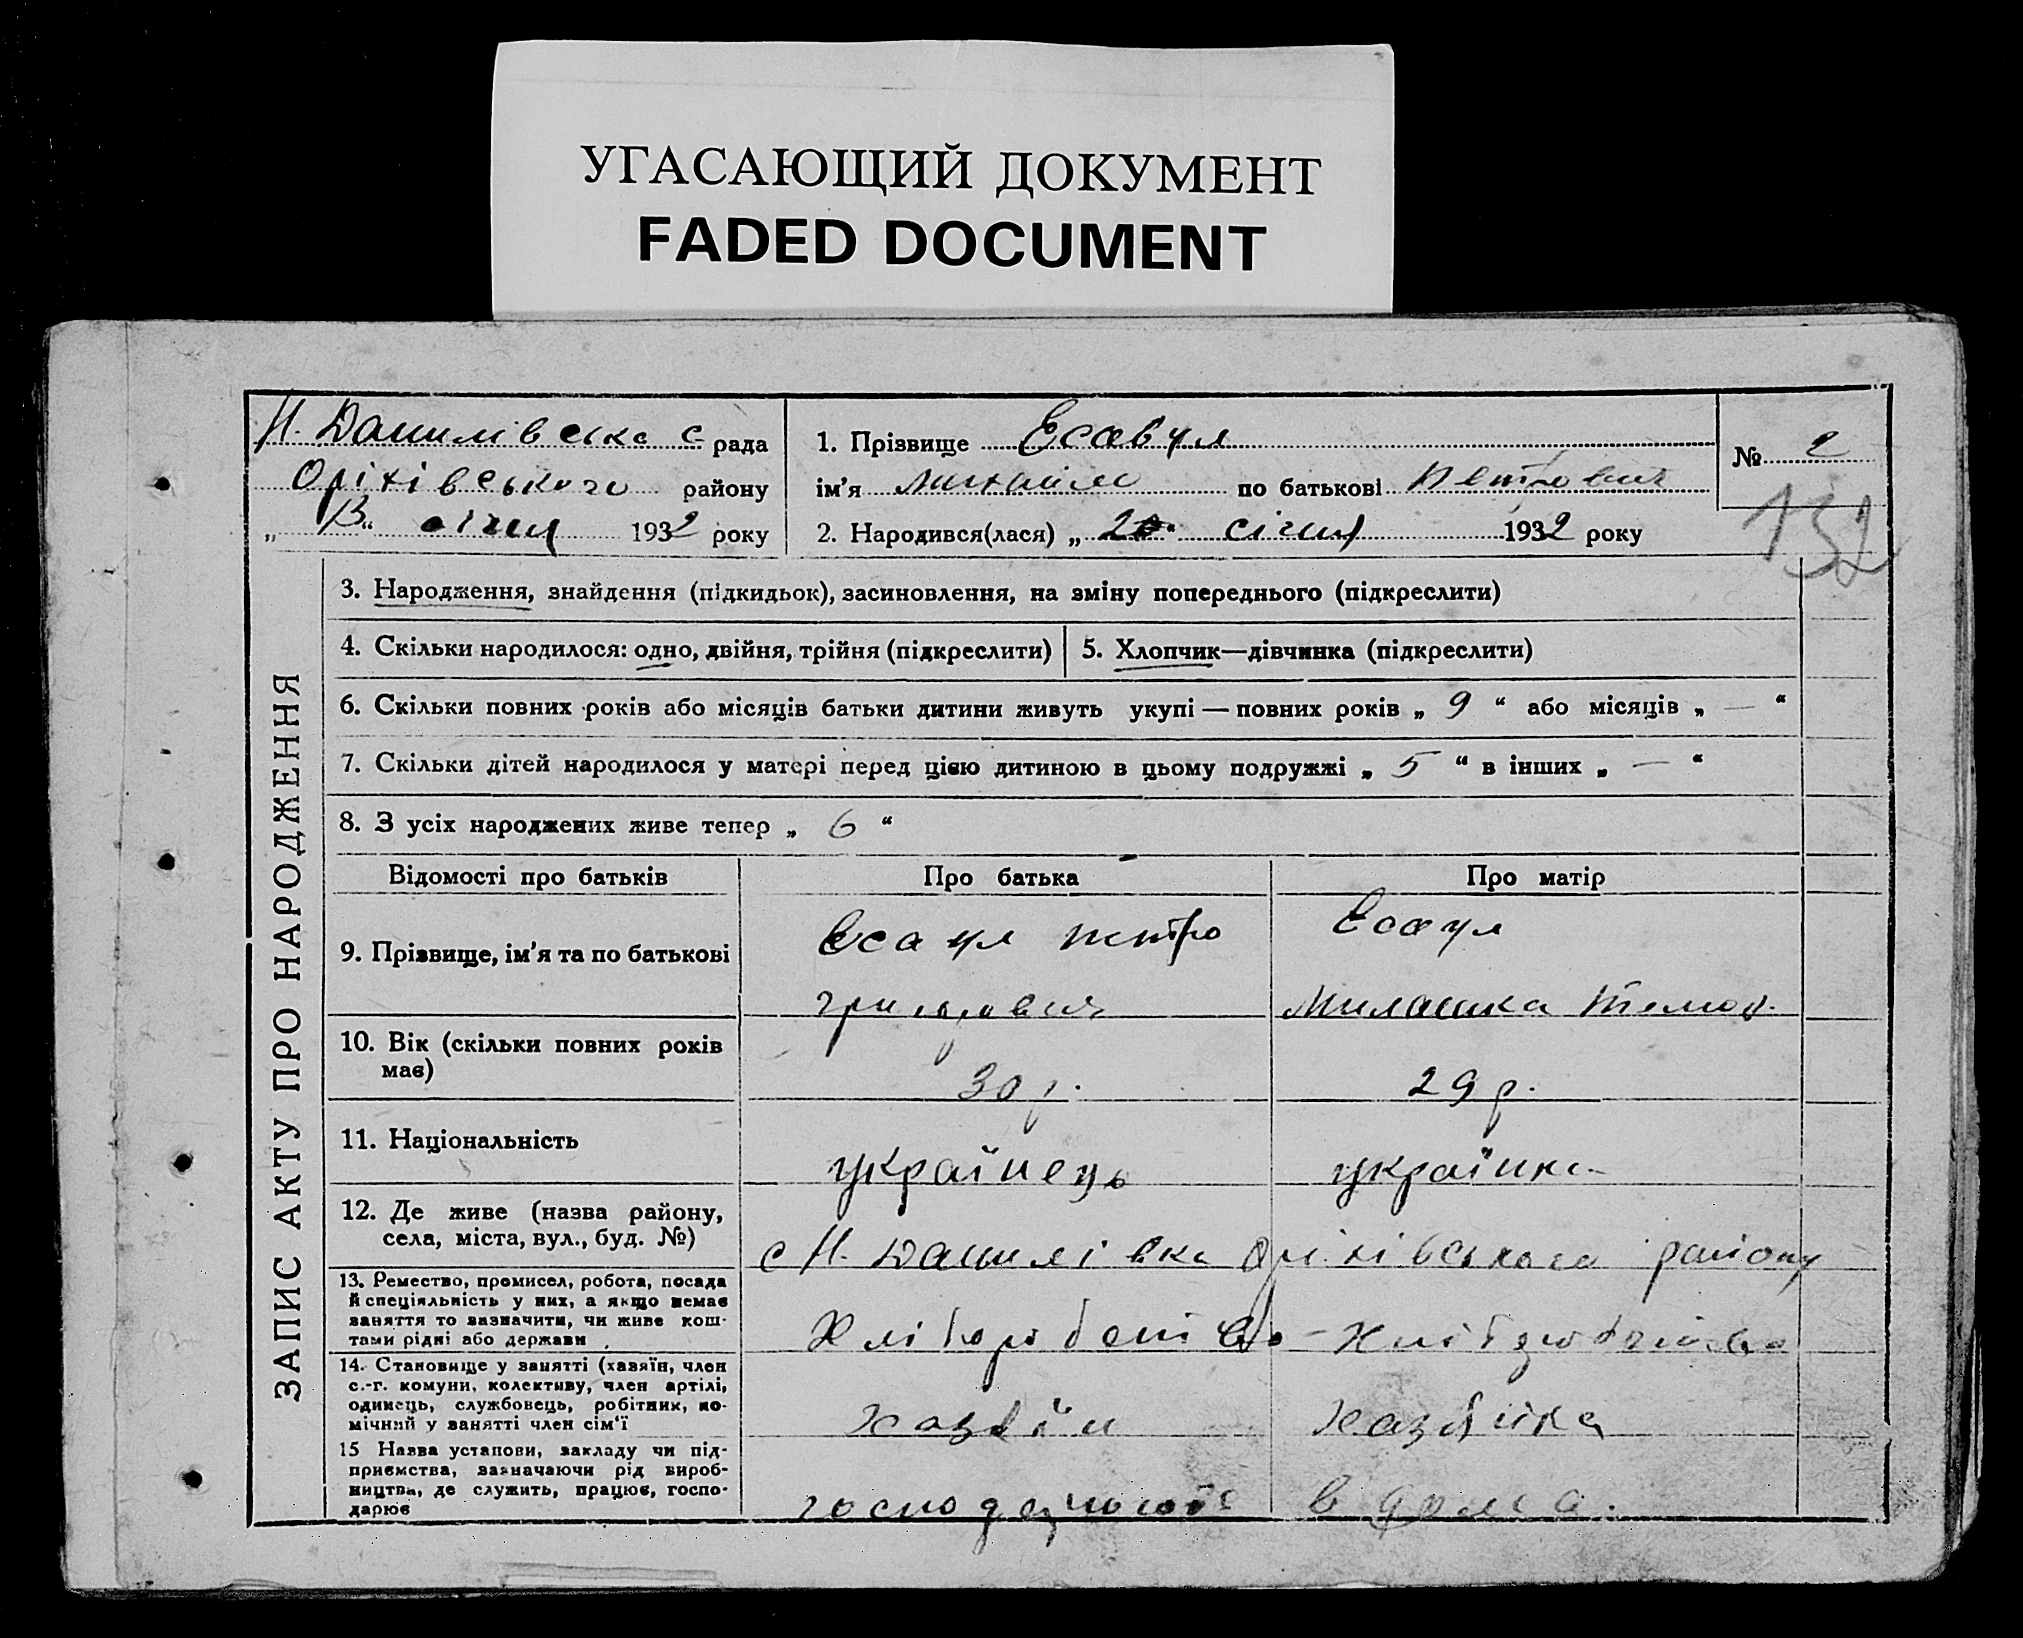 УГАСАЮЩИЙ ДОКУМЕНТ
FADED DOCUMENT
Н. Данилівська с рада
Оріхівського району
„ 13 “ січня 1932 року
1. Прізвище Есавул
ім’я Михайло по батькові Петрович
2. Народився(лася) „ “ січня 1932 року
№ 2
132
ЗАПИС АКТУ ПРО НАРОДЖЕННЯ
3. Народження, знайдення (підкидьок), засиновлення, на зміну попереднього (підкреслити)
4. Скільки народилося: одно, двійня, трійня (підкреслити)
5. Хлопчик—дівчинка (підкреслити)
6. Скільки повних років або місяців батьки дитини живуть укупі — повних років „ 9 “ або місяців „ — “
7. Скільки дітей народилося у матері перед цією дитиною в цьому подружжі „ 5 “ в інших „ — “
8. З усіх народжених живе тепер „ 6 “
Відомості про батьків
Про батька
Про матір
9. Прізвище, ім’я та по батькові
Есаул Петро
Григорович
Есаул
Милашка Тимоф.
10. Вік (скільки повних років
має)
30 р.
29 р.
11. Національність
українець
українка
12. Де живе (назва району,
села, міста, вул., буд. №)
с Н. Данилівка Оріхівського району
13. Ремество, промисел, робота, посада
й спеціяльність у них, а якщо немає
заняття то зазначити, чи живе кош-
тами рідні або держави
Хліборобство – Хліборобство
14. Становище у занятті (хазяїн, член
с.-г. комуни, колективу, член артілі,
одинець, службовець, робітник, по-
мічний у занятті член сім’ї
хазяїн
хазяйка
15 Назва установи, закладу чи під-
приємства, зазначаючи рід вироб-
ництва, де служить, працює, госпо-
дарює
в дома.